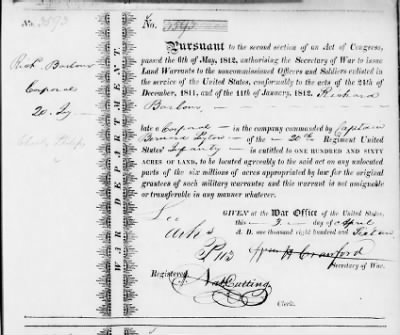 No. 3593
No. 3593
Richd. Barlow
Corporal
20. Inf
WAR DEPARTMENT.
Pursuant to the second section of an Act of Congress,
passed the 6th of May, 1812, authorising the Secretary of War to issue
Land Warrants to the noncommissioned Officers and Soldiers enlisted in
the service of the United States, conformably to the acts of the 24th of
December, 1811, and of the 11th of January, 1812. Richard
Barlow,
late a Corporal in the company commanded by Captain
of the 20th Regiment United
States' Infantry is entitled to ONE HUNDRED AND SIXTY
ACRES OF LAND, to be located agreeably to the said act on any unlocated
parts of the six millions of acres appropriated by law for the original
grantees of such military warrants; and this warrant is not assignable
or transferable in any manner whatever.
GIVEN at the War Office of the United States,
this 3 day of April
A. D. one thousand eight hundred and Sixteen
Wm H Crawford
Secretary of War.
Registered
Nat Cutting
Clerk.